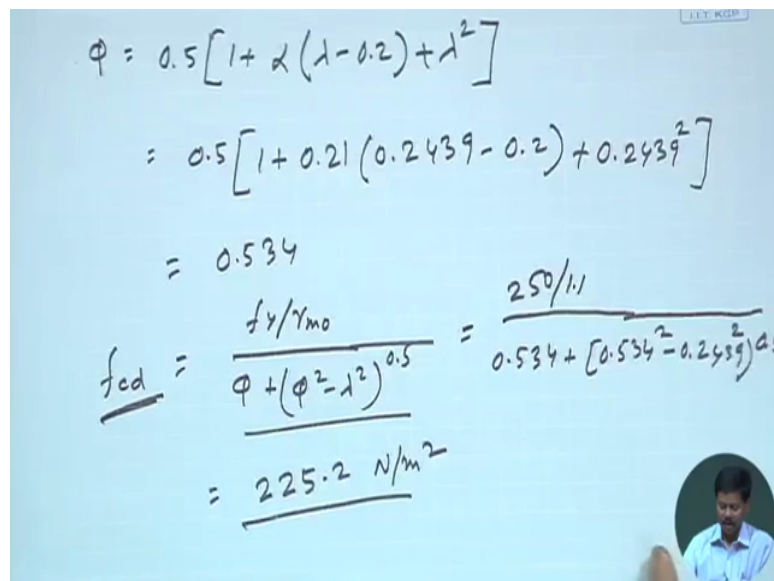 I.I.T. KGP
φ = 0.5[1 + α(λ - 0.2) + λ²]
= 0.5[1 + 0.21(0.2439 - 0.2) + 0.2439²]
= 0.534
fcd = fy/γmo / φ + (φ² - λ²)^0.5 = 250/1.1 / 0.534 + [0.534² - 0.2439²)
= 225.2 N/m²